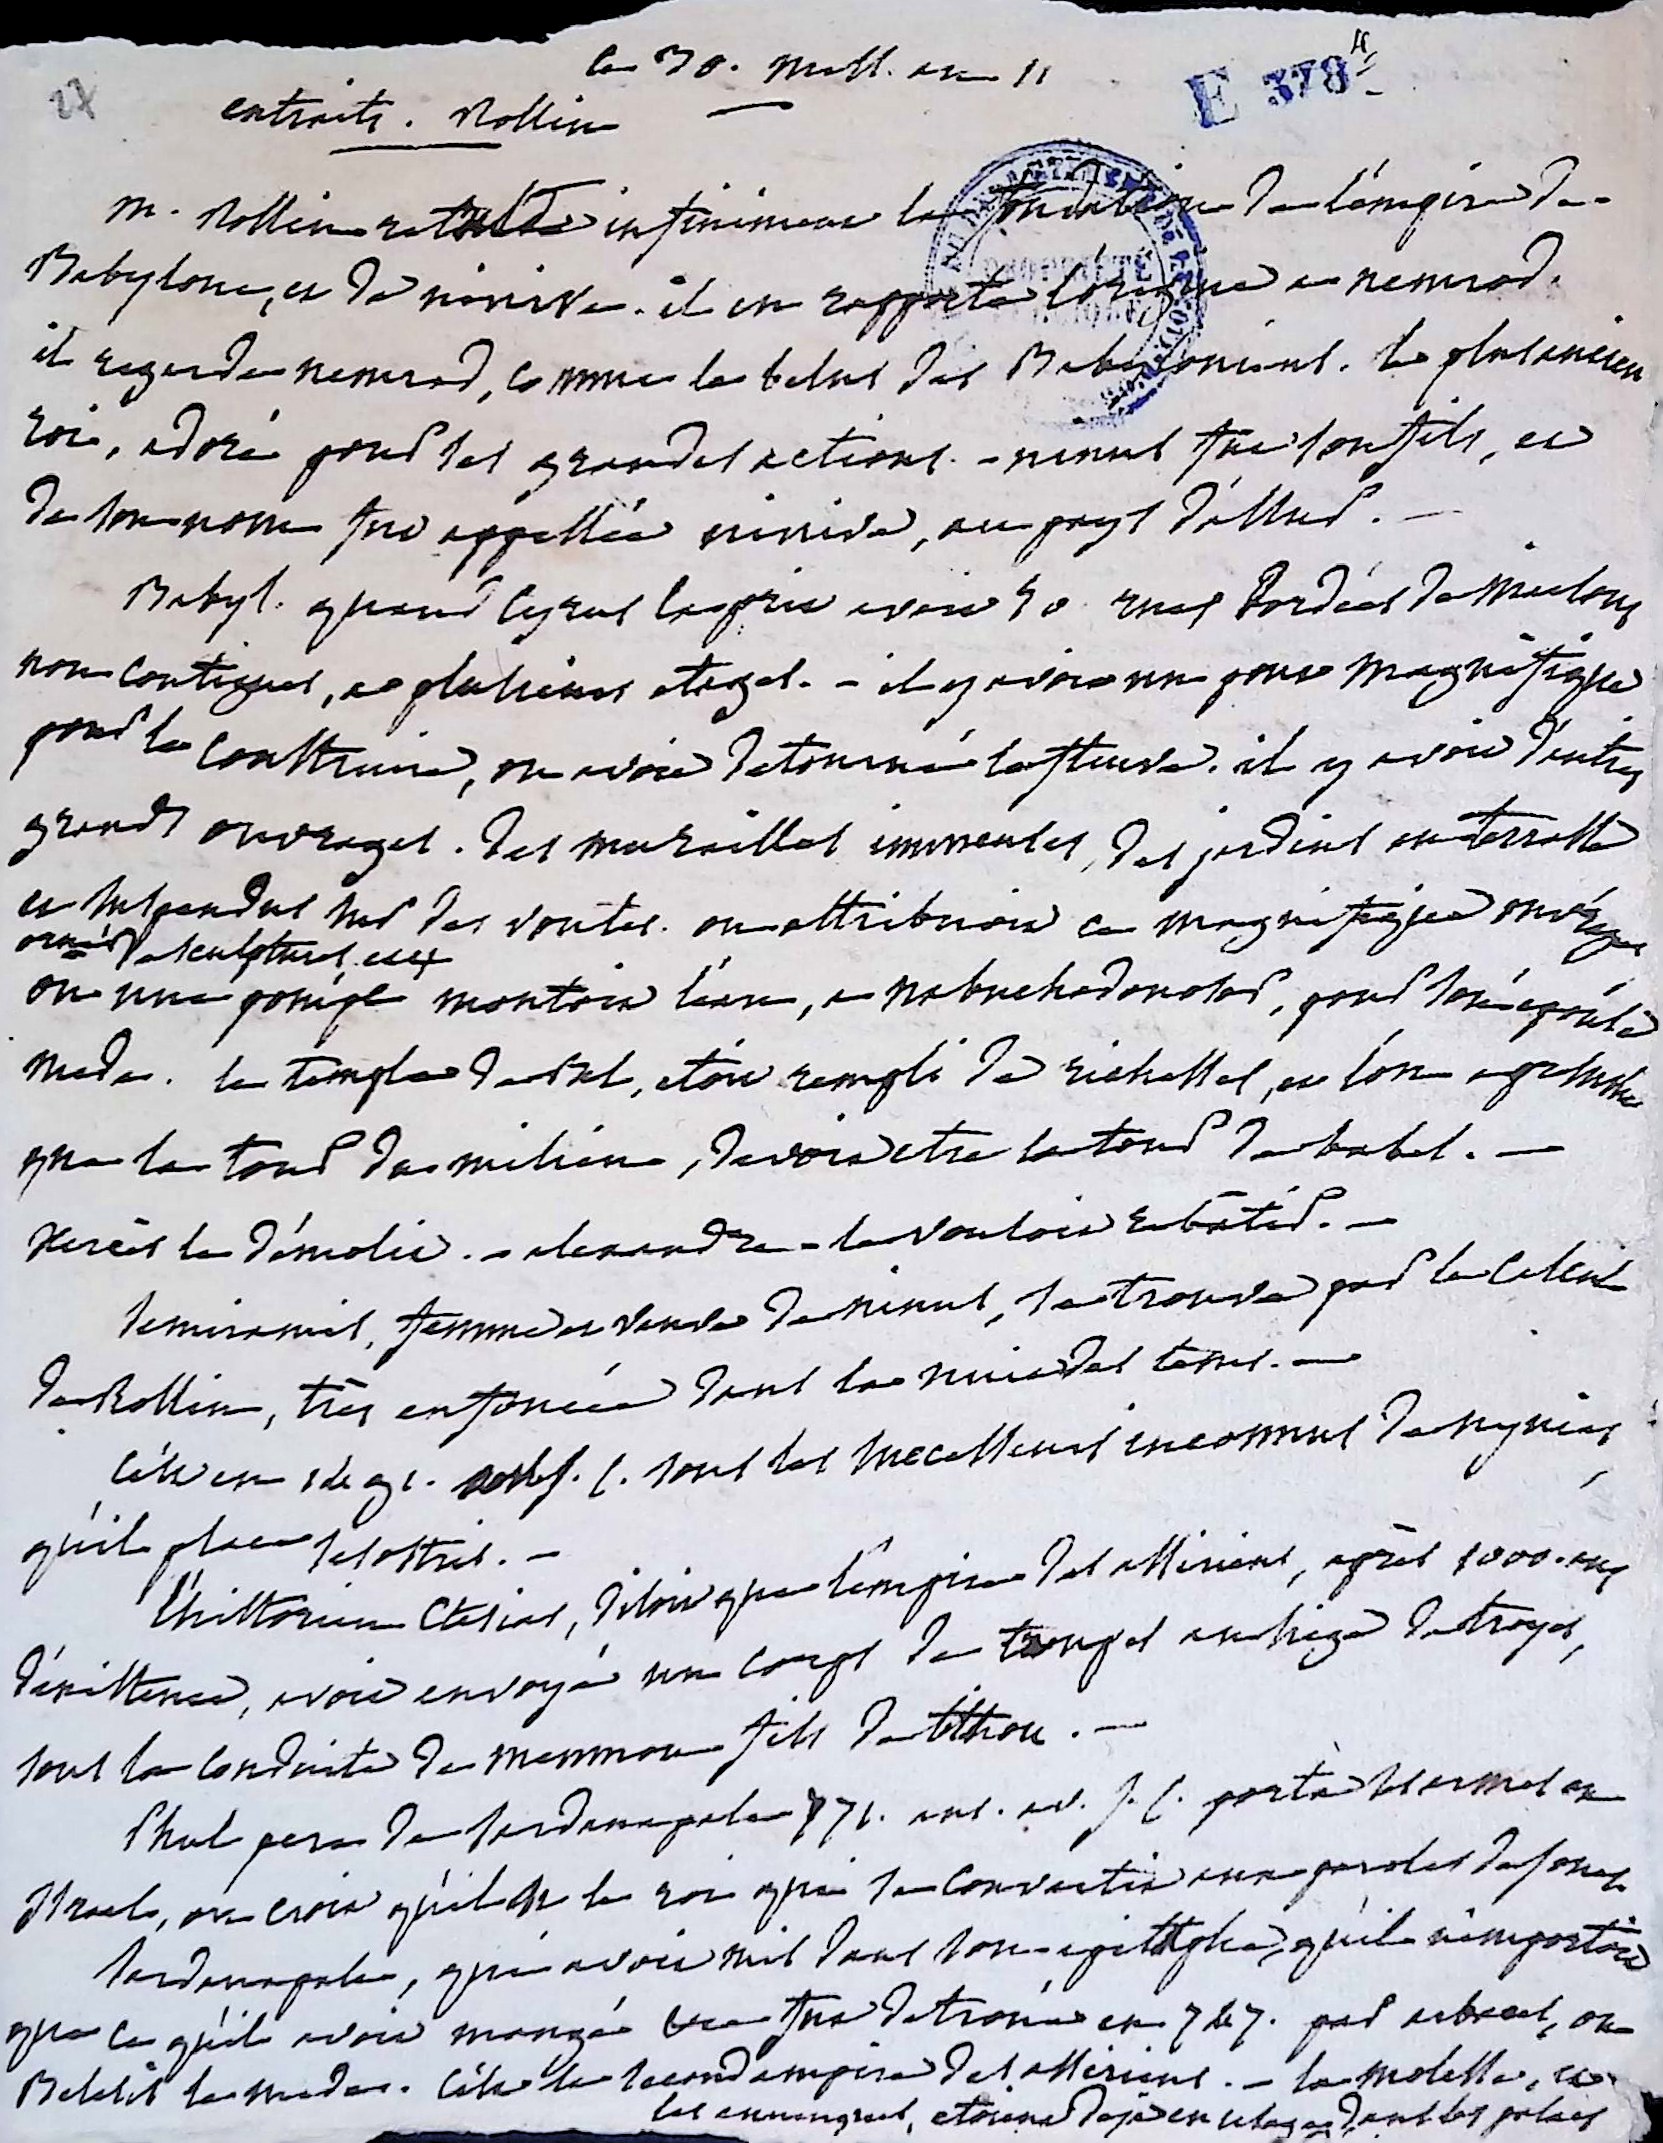 27
le 30. mess. an 11
E 378
extraits. Rollin
m. Rollin recule infiniment la fondation de l'empire de
Babylone, et de ninive. il en rapporte l'origine a nemrod.
il regarde nemrod, comme le belus des Babyloniens. le plus ancien
roi, adoré pour ses grandes actions. - ninus fut son fils, et
de son nom fut appellée ninive, au pays d'assur. -
Babyl. quand Cyrus la prit avoit 50 rues bordées de maisons
non contigues, a plusieurs etages. - il y avoit un pont magnifique
pour le construire, on avoit detourné le fleuve. il y avoit d'autres
grands ouvrages. des murailles immenses, des jardins en terrasse
et suspendus sur des voutes. on attribuoit ce magnifique ouvrage
orné de sculptures, et
ou une pompe montoit l'eau, a nabuchodonosor, pour son épouse
mede. le temple de Bel, etoit rempli de richesses, et l'on a presumé
que la tour du milieu, devoit etre la tour de babel. -
Xercès le démolit. - alexandre le vouloit rebatir. -
semiramis, femme et veuve de ninus, se trouve par le calcul
de Rollin, très enfoncée dans la nuit des tems. -
c'est en 1491. J. C. sous les successeurs inconnus de nynias,
qu'il place sesostris. -
l'historien Ctesias, disoit que l'empire des assiriens, après 1000. ans
d'existence, avoit envoyé un corps de troupes au siege de troyes,
sous la conduite de memnon fils de tithon. -
Phul pere de sardanapale 771. ans. av. J. C. porta ses armes en
Israel, on croit qu'il est le roi qui se convertit aux paroles de Jonas
sardanapale, qui avoit mis dans son epitaphe, qu'il n'emportoit
que ce qu'il avoit mangé fut detroné en 747. par arbaces, ou
Belesis le mede. c'est le second empire des assiriens. - la molesse, et
les eunuques, etoient deja en usage dans les palais